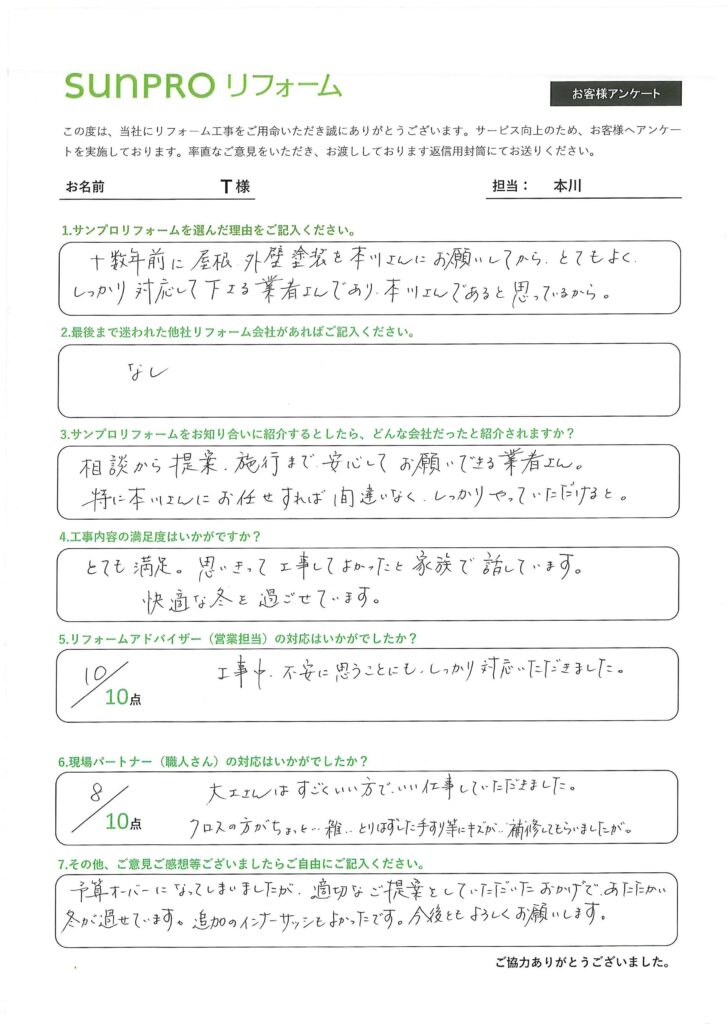 sunpro リフォーム
お客様アンケート
この度は、当社にリフォーム工事をご用命いただき誠にありがとうございます。サービス向上のため、お客様へアンケー
トを実施しております。率直なご意見をいただき、お渡ししております返信用封筒にてお送りください。
お名前 T様 担当: 本川
1.サンプロリフォームを選んだ理由をご記入ください。
十数年前に屋根、外壁塗装を本川さんにお願いしてから、とてもよく、
しっかり対応して下さる業者さんであり、本川さんであると思っているから。
2.最後まで迷われた他社リフォーム会社があればご記入ください。
なし
3.サンプロリフォームをお知り合いに紹介するとしたら、どんな会社だったと紹介されますか?
相談から提案、施行まで、安心してお願いできる業者さん。
特に本川さんにお任せすれば間違いなく、しっかりやっていただけると。
4.工事内容の満足度はいかがですか?
とても満足。思いきって工事してよかったと家族で話しています。
快適な冬を過ごせています。
5.リフォームアドバイザー(営業担当)の対応はいかがでしたか?
10/10点 工事中、不安に思うことにも、しっかり対応いただきました。
6.現場パートナー(職人さん)の対応はいかがでしたか?
8/10点 大工さんはすごくいい方で、いい仕事していただきました。
クロスの方がちょっと…雑… とりはずした手すり等にキズが…補修してもらいましたが。
7.その他、ご意見ご感想等ございましたらご自由にご記入ください。
予算オーバーになってしまいましたが、適切なご提案をしていただいたおかげで、あたたかい
冬が過せています。追加のインナーサッシもよかったです。今後ともよろしくお願いします。
ご協力ありがとうございました。